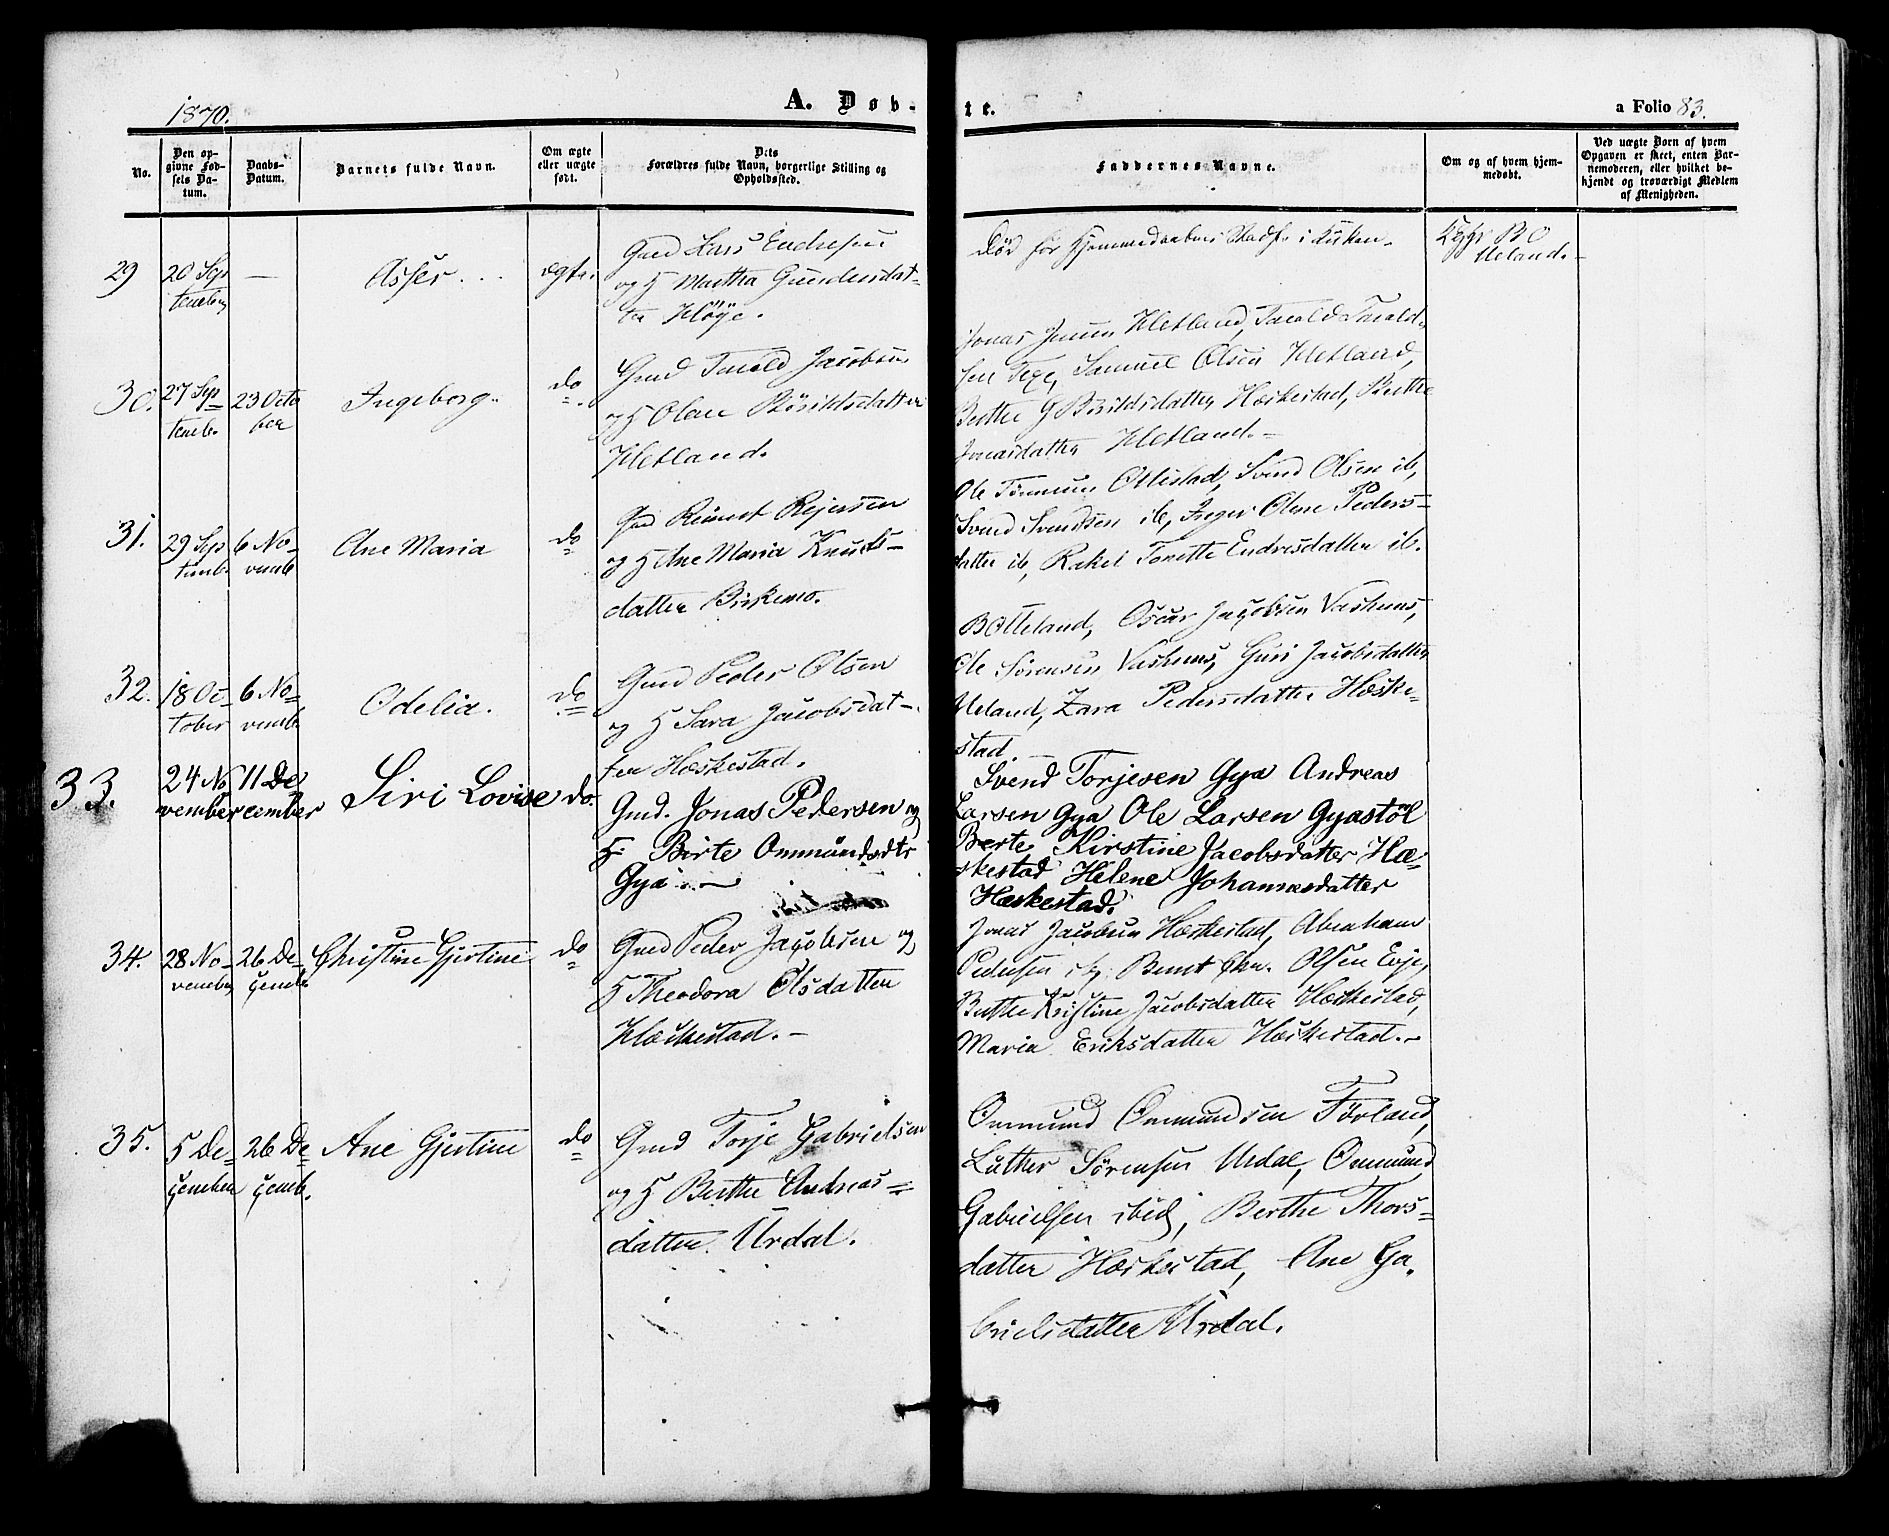 1870.
A. Døb-
te.
a Folio 83.
No.
Den op-
givne Fød-
sels Da-
tum.
Daabs-
Datum.
Barnets fulde Navn.
Om ægte
eller uægte
født.
Dets
Forældres fulde Navn, borgerlige Stilling og
Opholdssted.
Faddernes Navne.
Om og af hvem hjem-
medøbt.
Ved uægte Børn af hvem
Opgaven er skeet, enten Bar-
nemoderen, eller hvilket be-
kjendt og troværdigt Medlem
af Menigheden.
29
20 Sep
tember
—
Asser
ægte.
Gmd Lars Endresen
og H Martha Gundersdat-
ter
Død før Hjemmedaabens Stadf. i Kirken.
B O
Ueland.
30.
27 Sep
temb.
23 Octo
ber
Ingeborg.
do
Gmd Tarald Jacobsen
og H Olene
Hetland.
Jonas Hetland, Tarald Tarald-
sen Samuel Olsen Hetland,
Berthe G Hæskestad, Berthe
Jonasdatter Hetland.
31.
29 Sep
temb.
6 No-
vemb
Ane Maria
do
Gmd Reinert Rejersen
og H Ane Maria Knuds-
datter Birkemo.
Ole Svend Olsen ib,
Svend Svendsen ib, Inger Olene Peders-
datter ib, Rakel Tonette Endresdatter ib.
32.
18 Oc-
tober
6 No-
vemb
Odelia.
do
Gmd Peder Olsen
og H Sara Jacobsdat-
ter Hæskestad.
B O Ueland, Oscar Jacobsen
Ole Sørensen Guri Jacobsdatter
Ueland, Zara Pedersdatter Hæske-
stad.
33.
24 No
vember
11 De
cember
Siri Lovise
do.
Gmd. Jonas Pedersen og
H. Birte Ommundsdtr
Gya.
Svend Torjesen Gya Andreas
Larsen Gya Ole Larsen Gyastøl
Berte Kirstine Jacobsdatter Hæ-
skestad Helene Johannesdatter
Hæskestad.
34.
28 No-
vember
26 De-
cemb
Christine Gjertine
do
Gmd Peder Jacobsen og
H Theodora Olsdatter
Hæskestad.
Jonas Jacobsen Hæskestad, Abraham
Pedersen Olsen Eeje,
Berthe Kristine Jacobsdatter Hæskestad,
Maria Eriksdatter Hæskestad.
35.
5 De-
cember
26 De-
cemb.
Ane Gjertine
do
Gmd Torje Gabrielsen
og H Berthe Andreas-
datter Urdal.
Ommund Ommundsen Førland,
Luther Sørensen Urdal, Ommund
Gabrielsen ibid, Berthe Thors-
datter Hæskestad, Ane Ga-
brielsdatter Urdal.